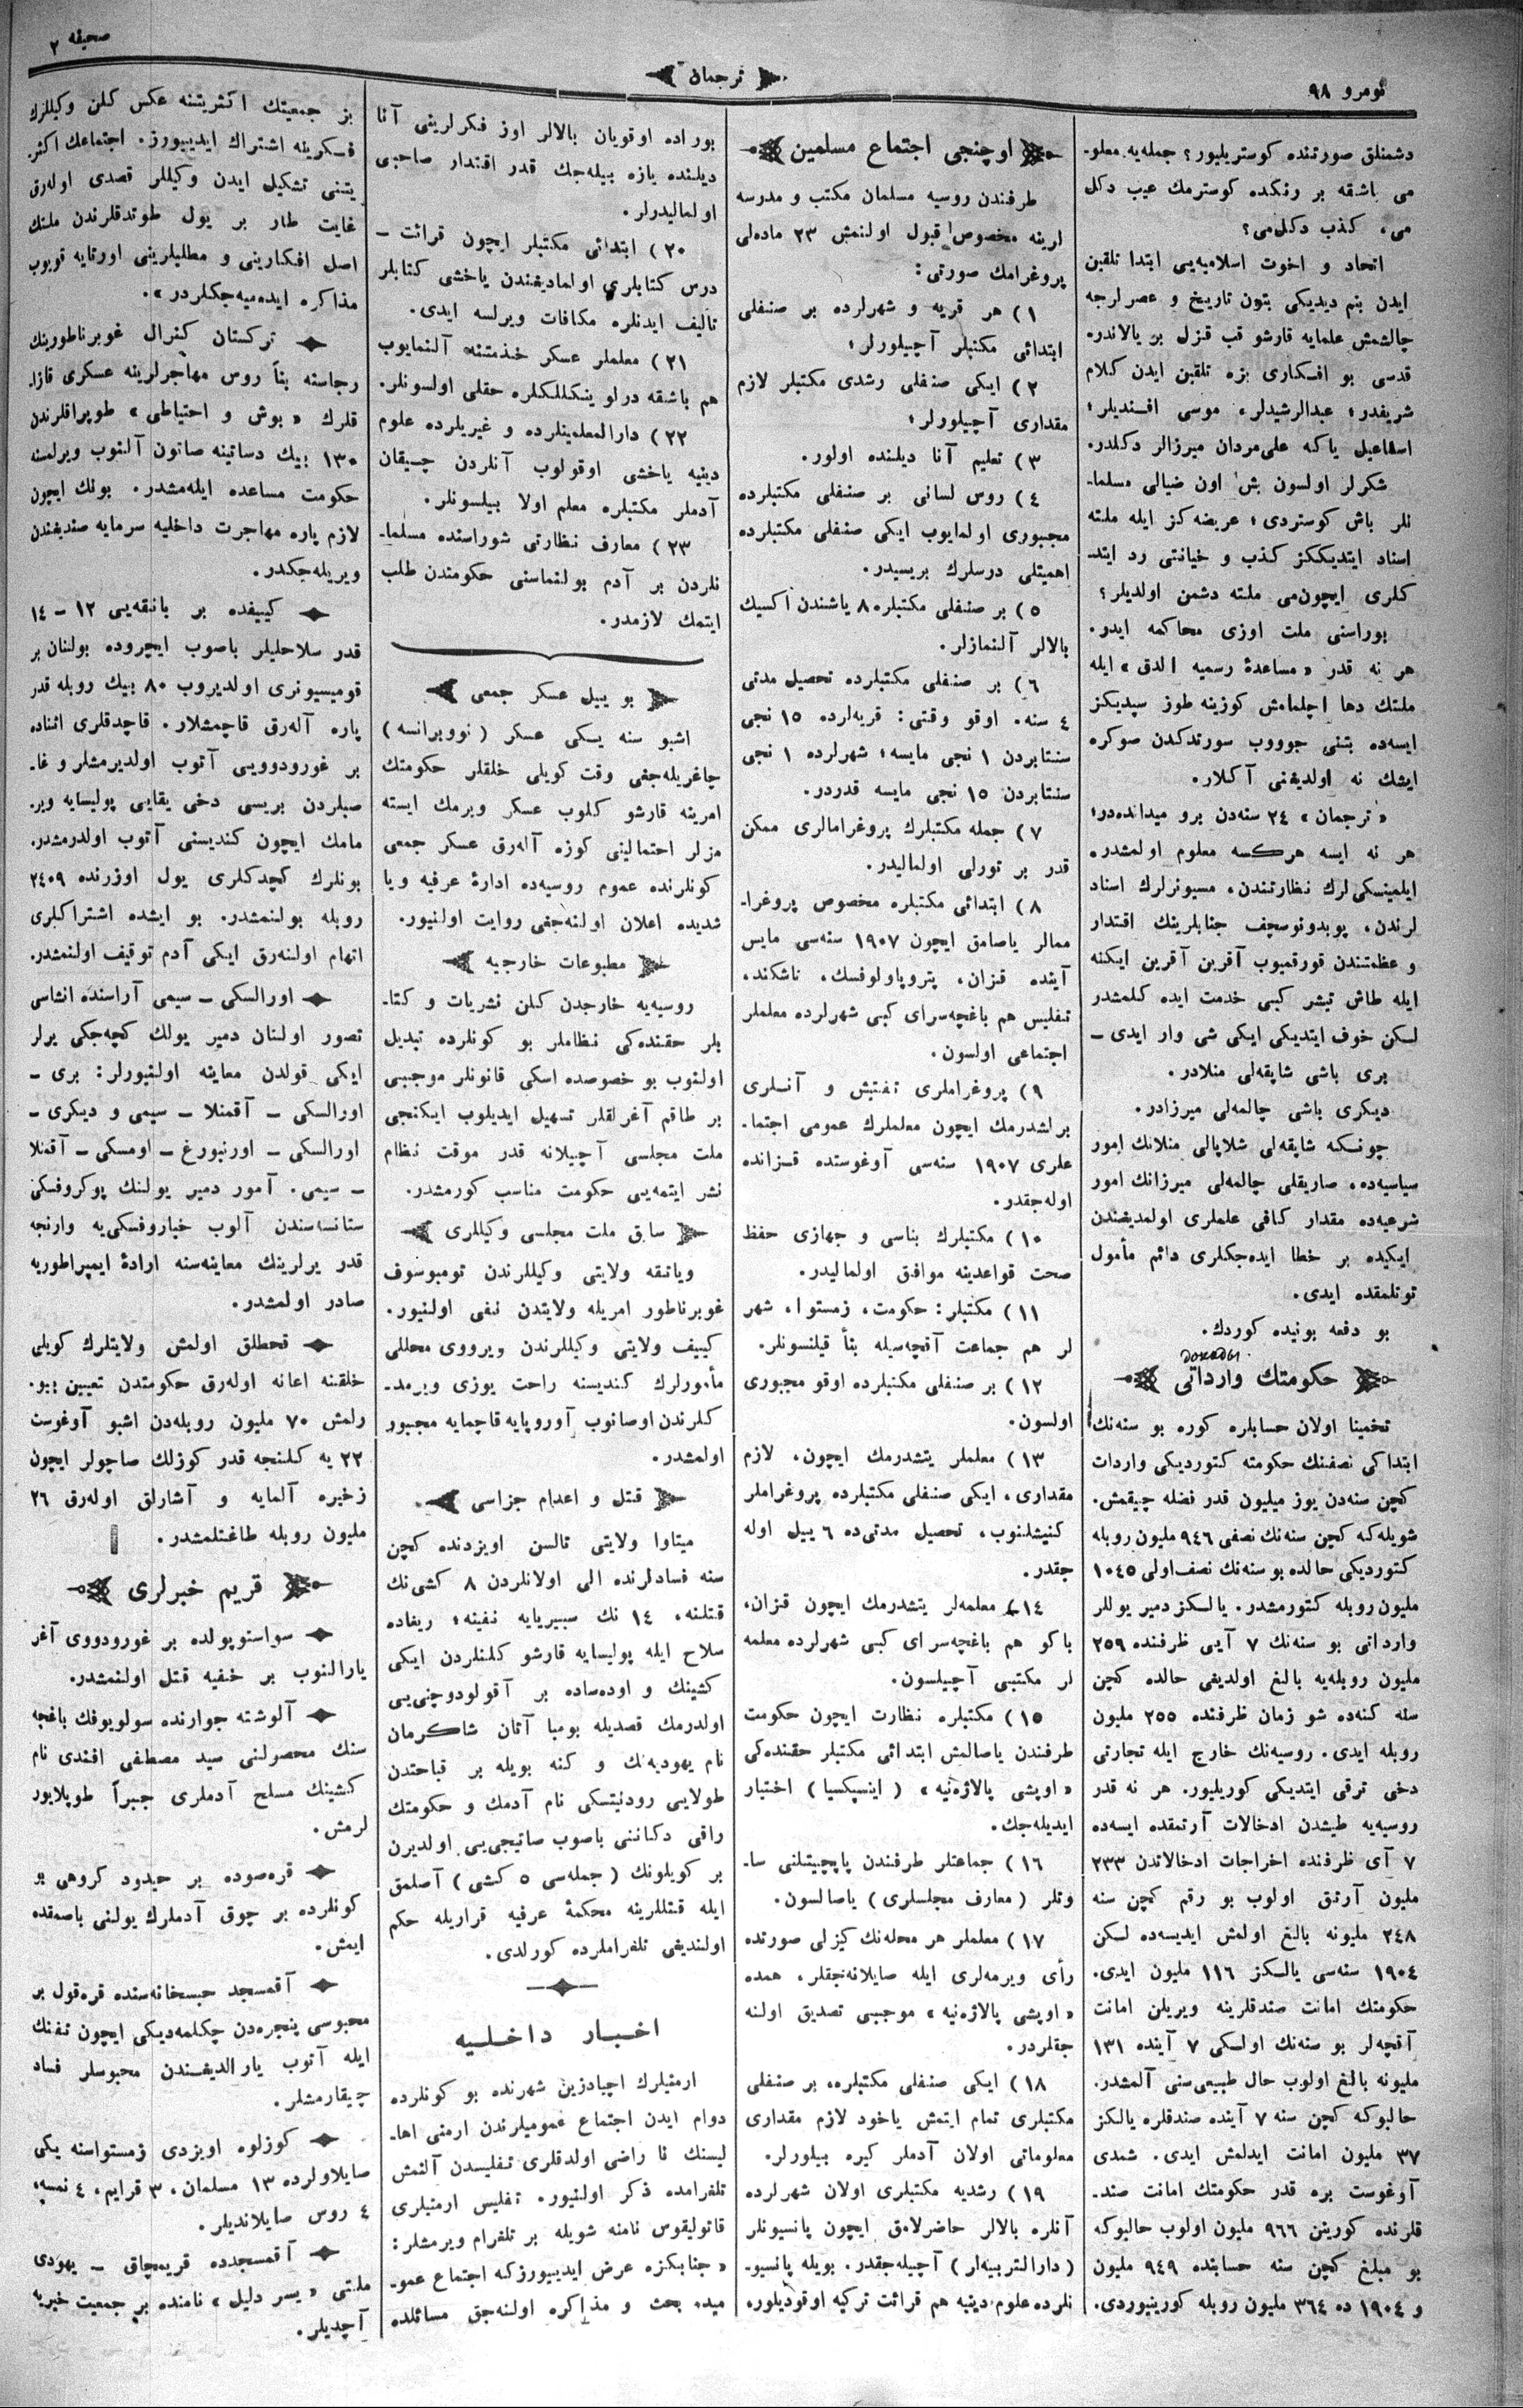 نومرو ۹۸
ترجمان
صحیفه ۲
دشمنلق صورتنده کوستریلیور؟ جمله‌یه معلو-
می باشقه بر رنکده کوسترمك عیب دکل
می، کذب دکل‌می؟
اتحاد و اخوت اسلامیه‌یی ابتدا تلقین
ایدن بنم دیدیکی بتون تاریخ و عصرلرجه
چالشمش علمایه قارشو قب قزل بر یالاندر.
قدسی بو افکاری بزه تلقین ایدن کلام
شریفدر؛ عبدالرشیدلر، موسی افندیلر؛
اسماعیل یاکه علی‌مردان میرزالر دکلدر.
شکرلر اولسون بش اون ضیالی مسلما-
نلر باش کوستردی؛ عریضه‌کز ایله ملته
اسناد ایتدیککز کذب و خیانتی رد ایتد-
کلری ایچون‌می ملته دشمن اولدیلر؟
بوراسنی ملت اوزی محاکمه ایدو.
هر نه قدر «مساعدهٔ رسمیه الدق» ایله
ملتك دها اچلمامش کوزینه طوز سپدیکز
ایسه‌ده بتنی جوووب سورتدکدن صوکره
ایشك نه اولدیغنی آکلار.
«ترجمان» ۲۴ سنه‌دن برو میدانده‌در؛
هر نه ایسه هرکسه معلوم اولمشدر.
ایلمینسکی‌لرك نظارتندن، مسیونرلرك اسناد
لرندن، پوبدونوسچف جنابلرینك اقتدار
و عظمتندن قورقمیوب آقرین آقرین ایکنه
ایله طاش تیشر کبی خدمت ایده کلمشدر
لسکن خوف ایتدیکی ایکی شی وار ایدی –
بری باشی شاپقه‌لی منلادر.
دیکری باشی چالمه‌لی میرزادر.
چونکه شاپقه‌لی شلاپالی منلانك امور
سیاسیه‌ده، صاریقلی چالمه‌لی میرزانك امور
شرعیه‌ده مقدار کافی علملری اولمدیغندن
ایکیده بر خطا ایده‌جکلری دائم مأمول
توتلمقده ایدی.
بو دفعه بونیده کوردك.
доходы.
حکومتك وارداتی
تخمینا اولان حسابلره کوره بو سنه‌نك
ابتداکی نصفنك حکومته کتوردیکی واردات
کچن سنه‌دن یوز میلیون قدر فضله چیقمش.
شویله‌که کچن سنه‌نك نصفی ۹۴۶ ملیون روبله
کتوردیکی حالده بو سنه‌نك نصف‌اولی ۱۰۴۵
ملیون روبله کتورمشدر. یالکز دمیر یوللر
وارداتی بو سنه‌نك ۷ آیی ظرفنده ۲۵۹
ملیون روبله‌یه بالغ اولدیغی حالده کچن
سنه کنه‌ده شو زمان ظرفنده ۲۵۵ ملیون
روبله ایدی. روسیه‌نك خارج ایله تجارتی
دخی ترقی ایتدیکی کوریلیور. هر نه قدر
روسیه‌یه طیشدن ادخالات آرتمقده ایسه‌ده
۷ آی ظرفنده اخراجات ادخالاتدن ۲۳۳
ملیون آرتق اولوب بو رقم کچن سنه
۲۴۸ ملیونه بالغ اولمش ایدیسه‌ده لسکن
۱۹۰۴ سنه‌سی یالکز ۱۱۶ ملیون ایدی.
حکومتك امانت صندقلرینه ویریلن امانت
آقچه‌لر بو سنه‌نك اولسکی ۷ آینده ۱۳۱
ملیونه بالغ اولوب حال طبیعی‌سنی آلمشدر.
حالبوکه کچن سنه ۷ آینده صندقلره یالکز
۳۷ ملیون امانت ایدلمش ایدی. شمدی
آوغوست بره قدر حکومتك امانت صند-
قلرنده کورینن ۹۶۶ ملیون اولوب حالبوکه
بو مبلغ کچن سنه حسابنده ۹۴۹ ملیون
و ۱۹۰۴ ده ۳۶۴ ملیون روبله کورینیوردی.
اوچنجی اجتماع مسلمین
طرفندن روسیه مسلمان مکتب و مدرسه
لرینه مخصوص قبول اولنمش ۲۳ ماده‌لی
پروغرامك صورتی:
۱) هر قریه و شهرلرده بر صنفلی
ابتدائی مکتبلر آچیلورلر؛
۲) ایکی صنفلی رشدی مکتبلر لازم
مقداری آچیلوورلر؛
۳) تعلیم آنا دیلنده اولور.
۴) روس لسانی بر صنفلی مکتبلرده
مجبوری اولمایوب ایکی صنفلی مکتبلرده
اهمیتلی درسلرك بریسیدر.
۵) بر صنفلی مکتبلره ۸ یاشندن اکسیك
بالالر آلنمازلر.
۶) بر صنفلی مکتبلرده تحصیل مدتی
۴ سنه. اوقو وقتی: قریه‌لرده ۱۵ نجی
سنتابردن ۱ نجی مایسه؛ شهرلرده ۱ نجی
سنتابردن ۱۵ نجی مایسه قدردر.
۷) جمله مکتبلرك پروغرامالری ممکن
قدر بر تورلی اولمالیدر.
۸) ابتدائی مکتبلره مخصوص پروغرا-
ممالر یاصامق ایچون ۱۹۰۷ سنه‌سی مایس
آینده قزان، پتروپاولوفسك، تاشکند،
تفلیس هم باغچه‌سرای کبی شهرلرده معلملر
اجتماعی اولسون.
۹) پروغراملری تفتیش و آنلری
برلشدرمك ایچون معلملرك عمومی اجتما-
علری ۱۹۰۷ سنه‌سی آوغوستده قزانده
اوله‌جقدر.
۱۰) مکتبلرك بناسی و جهازی حفظ
صحت قواعدینه موافق اولمالیدر.
۱۱) مکتبلر: حکومت، زمستوا، شهر
لر هم جماعت آقچه‌سیله بنأ قیلنسونلر.
۱۲) بر صنفلی مکتبلرده اوقو مجبوری
اولسون.
۱۳) معلملر یتشدرمك ایچون، لازم
مقداری، ایکی صنفلی مکتبلرده پروغراملر
کنیشلنوب، تحصیل مدتی‌ده ۶ ییل اوله
جقدر.
۱۴) معلمه‌لر یتشدرمك ایچون قزان،
باکو هم باغچه‌سرای کبی شهرلرده معلمه
لر مکتبی آچیلسون.
۱۵) مکتبلره نظارت ایچون حکومت
طرفندن یاصالمش ابتدائی مکتبلر حقنده‌کی
«اوبشی پالاژه‌نیه» (اینسپکسیا) اختیار
ایدیله‌جك.
۱۶) جماعتلر طرفندن پاپچیتلنی سا-
وتلر (معارف مجلسلری) یاصالسون.
۱۷) معلملر هر محله‌نك کیزلی صورتده
رأی ویرمه‌لری ایله صایلانه‌جقلر، همده
«اوبشی پالاژه‌نیه» موجبی تصدیق اولنه
جقلردر.
۱۸) ایکی صنفلی مکتبلره، بر صنفلی
مکتبلری تمام ایتمش یاخود لازم مقداری
معلوماتی اولان آدملر کیره بیلورلر.
۱۹) رشدیه مکتبلری اولان شهرلرده
آنلره بالالر حاضرلامق ایچون پانسیونلر
(دارالتربیه‌لر) آچیله‌جقدر. بویله پانسیو-
نلرده علوم دینیه هم قرائت ترکیه اوقودیلور.
بوراده اوقویان بالالر اوز فکرلرینی آنا
دیلنده یازه بیله‌جك قدر اقتدار صاحبی
اولمالیدرلر.
۲۰) ابتدائی مکتبلر ایچون قرائت –
درس کتابلری اولمادیغندن یاخشی کتابلر
تالیف ایدنلره مکافات ویرلسه ایدی.
۲۱) معلملر عسکر خذمتنه آلنمایوب
هم باشقه درلو ینکللکلره حقلی اولسونلر.
۲۲) دارالمعلمینلرده و غیریلرده علوم
دینیه یاخشی اوقولوب آنلردن چیقان
آدملر مکتبلره معلم اولا بیلسونلر.
۲۳) معارف نظارتی شوراسنده مسلما-
نلردن بر آدم بولنماسنی حکومتدن طلب
ایتمك لازمدر.
بو ییل عسکر جمعی
اشبو سنه یسکی عسکر (نووبرانسه)
چاغریله‌جغی وقت کویلی خلقلر حکومتك
امرینه قارشو کلوب عسکر ویرمك ایسته
مزلر احتمالینی کوزه آله‌رق عسکر جمعی
کونلرنده عموم روسیه‌ده ادارهٔ عرفیه ویا
شدیده اعلان اولنه‌جغی روایت اولنیور.
مطبوعات خارجیه
روسیه‌یه خارجدن کلن نشریات و کتا-
بلر حقنده‌کی نظاملر بو کونلرده تبدیل
اولنوب بو خصوصده اسکی قانونلر موجبی
بر طاقم آغرلقلر تسهیل ایدیلوب ایکنجی
ملت مجلسی آچیلانه قدر موقت نظام
نشر ایتمه‌یی حکومت مناسب کورمشدر.
سابق ملت مجلسی وکیللری
ویاتقه ولایتی وکیللرندن تومبوسوف
غوبرناطور امریله ولایتدن نفی اولنیور.
کییف ولایتی وکیللرندن ویرووی محللی
مأمورلرك کندیسنه راحت یوزی ویرمد-
کلرندن اوصانوب آوروپایه قاچمایه مجبور
اولمشدر.
قتل و اعدام جزاسی
میتاوا ولایتی تالسن اویزدنده کچن
سنه فسادلرنده الی اولانلردن ۸ کشی‌نك
قتلنه، ۱۴ نك سیبیریایه نفینه؛ ریغاده
سلاح ایله پولیسایه قارشو کلنلردن ایکی
کشینك و اوده‌ساده بر آقولودوچنی‌یی
اولدرمك قصدیله بومبا آتان شاکرمان
نام یهودیه‌نك و کنه بویله بر قباحتدن
طولایی رودنیتسکی نام آدمك و حکومتك
راقی دکاننی باصوب صاتیجی‌یی اولدیرن
بر کویلونك (جمله‌سی ۵ کشی) آصلمق
ایله قتللرینه محکمهٔ عرفیه قراریله حکم
اولندیغی تلغراملرده کورلدی.
اخبار داخلیه
ارمنیلرك اچیادزین شهرنده بو کونلرده
دوام ایدن اجتماع عمومیلرندن ارمنی اها-
لیسنك نا راضی اولدقلری تفلیسدن آلنمش
تلغرامده ذکر اولنیور. تفلیس ارمنیلری
قاتولیقوس نامنه شویله بر تلغرام ویرمشلر:
«جنابکزه عرض ایدییورزکه اجتماع عمو-
میده بحث و مذاکره اولنه‌جق مسائلده
بز جمعیتك اکثریتنه عکس کلن وکیللرك
فکرینه اشتراك ایدییورز. اجتماعك اکثر-
یتنی تشکیل ایدن وکیللر قصدی اوله‌رق
غایت طار بر یول طوتدقلرندن ملتك
اصل افکارینی و مطلبلرینی اورتایه قویوب
مذاکره ایده‌میه‌جکلردر».
ترکستان کنرال غوبرناطورینك
رجاسنه بنأً روس مهاجرلرینه عسکری قازا-
قلرك «بوش و احتیاطی» طوپراقلرندن
۱۳۰ بیك دساتینه صاتون آلنوب ویرلمسنه
حکومت مساعده ایله‌مشدر. بونك ایچون
لازم پاره مهاجرت داخلیه سرمایه صندیغندن
ویریله‌جکدر.
کییفده بر بانقه‌یی ۱۲ – ۱۴
قدر سلاحلیلر باصوب ایچروده بولنان بر
قومیسیونری اولدیروب ۸۰ بیك روبله قدر
پاره آله‌رق قاچمشلار. قاچدقلری اثناده
بر غورودوویی آتوب اولدیرمشلر و غا-
صبلردن بریسی دخی یقایی پولیسایه ویر-
مامك ایچون کندیسنی آتوب اولدرمشدر.
بونلرك کچدکلری یول اوزرنده ۲۴۰۹
روبله بولنمشدر. بو ایشده اشتراکلری
اتهام اولنه‌رق ایکی آدم توقیف اولنمشدر.
اورالسکی – سیمی آراسنده انشاسی
تصور اولنان دمیر یولك کچه‌جکی یرلر
ایکی قولدن معاینه اولنیورلر: بری –
اورالسکی – آقمنلا – سیمی و دیکری –
اورالسکی – اورنبورغ – اومسکی – آقمنلا
– سیمی. آمور دمیر یولنك پوکروفسکی
ستانسه‌سندن آلوب خباروفسکی‌یه وارنجه
قدر یرلرینك معاینه‌سنه ارادهٔ ایمپراطوریه
صادر اولمشدر.
قحطلق اولمش ولایتلرك کویلی
خلقنه اعانه اوله‌رق حکومتدن تعیین بیو-
رلمش ۷۰ ملیون روبله‌دن اشبو آوغوست
۲۲ یه کلنجه قدر کوزلك صاچولر ایچون
زخیره آلمایه و آشارلق اوله‌رق ۲۶
ملیون روبله طاغتلمشدر.
قریم خبرلری
سواستوپولده بر غورودووی آغر
یارالنوب بر خفیه قتل اولنمشدر.
آلوشته جوارنده سولوویوفك باغچه
سنك محصولنی سید مصطفی افندی نام
کشینك مسلح آدملری جبراً طوپلایور
لرمش.
قره‌صوده بر حیدود کروهی بو
کونلرده بر چوق آدملرك یولنی باصمقده
ایمش.
آقمسجد حبسخانه‌سنده قره‌قول بر
محبوسی پنجره‌دن چکلمه‌دیکی ایچون تفنك
ایله آتوب یارالدیغندن محبوسلر فساد
چیقارمشلر.
کوزلوه اویزدی زمستواسنه یکی
صایلاولرده ۱۳ مسلمان، ۳ قرایم، ۴ نمسه،
۴ روس صایلاندیلر.
آقمسجدده قریمچاق – یهودی
ملتی «یسر دلیل» نامنده بر جمعیت خیریه
آچدیلر.